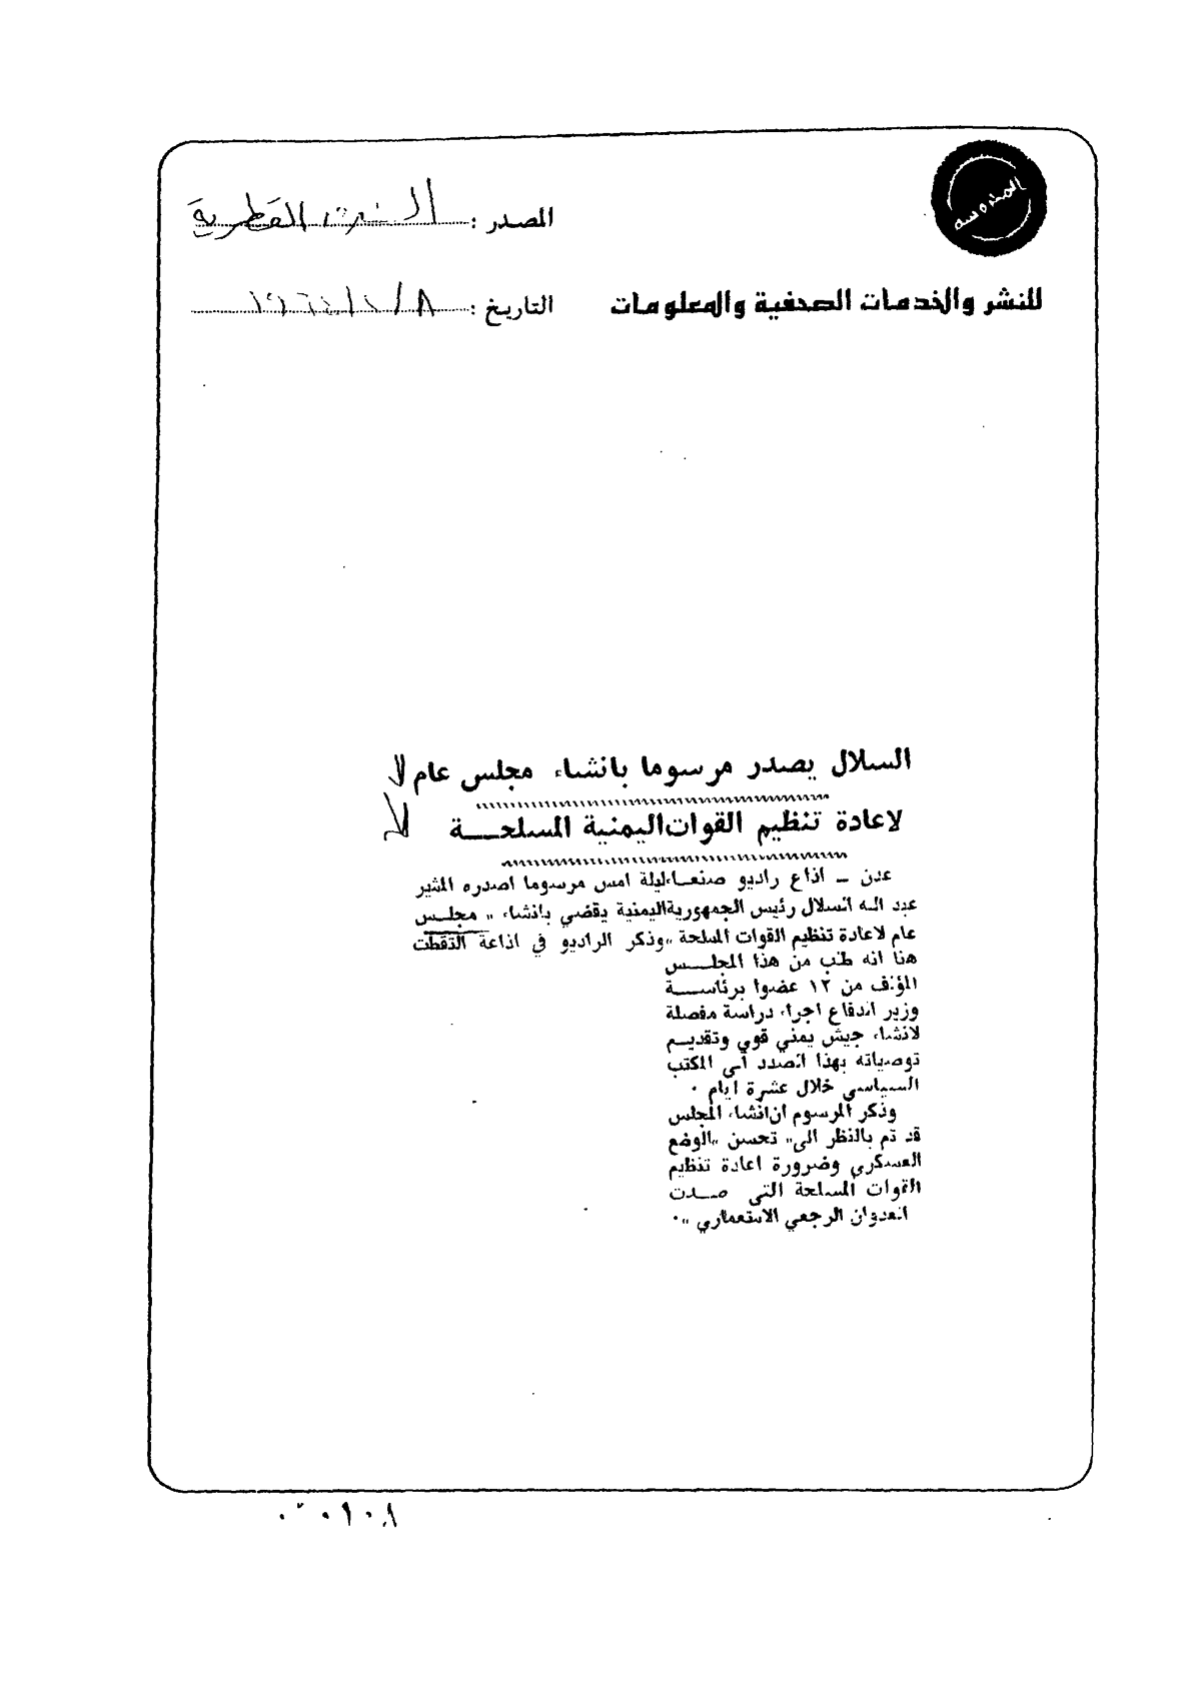 المصدر :
القطرية
للنشر والخدمات الصحفية والمعلومات
التاريخ :
السلال يصدر مرسوما بانشاء مجلس عام
لاعادة تنظيم القوات اليمنية المسلحـــة
عدن ــ اذاع راديو صنعاء ليلة امس مرسوما اصدره المشير
عبد الله السلال رئيس الجمهورية اليمنية يقضي بانشاء « مجلـس
عام لاعادة تنظيم القوات المسلحة » وذكر الراديو في اذاعة التقطت
هنا انه طلب من هذا المجلــس
المؤلف من ١٢ عضوا برئاســـة
وزير الدفاع اجراء دراسة مفصلة
لانشاء جيش يمني قوي وتقديــم
توصياته بهذا الصدد الى المكتب
السياسي خلال عشرة ايام ٠
وذكر المرسوم ان انشاء المجلس
قد تم بالنظر الى « تحسن « الوضع
العسكري وضرورة اعادة تنظيم
القوات المسلحة التي صــدت
العدوان الرجعي الاستعماري » ٠